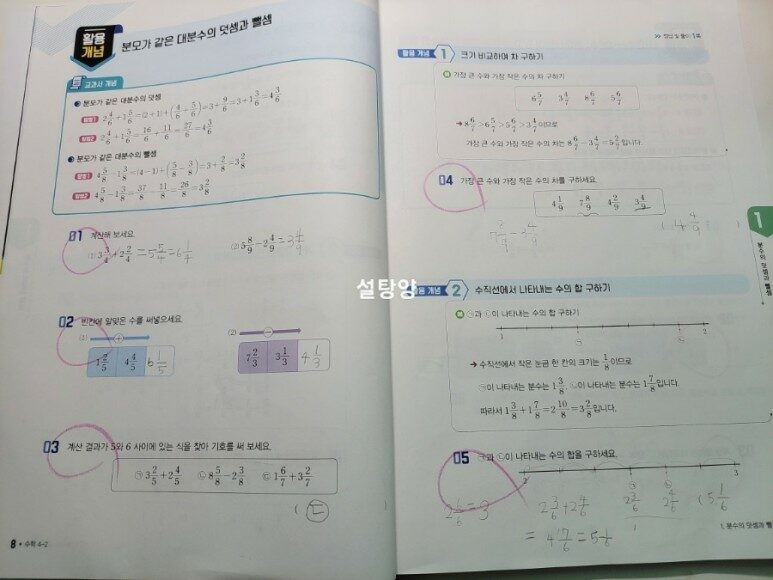 활용
개념
분모가 같은 대분수의 덧셈과 뺄셈
교과서 개념
분모가 같은 대분수의 덧셈
방법1 2 4/6 + 1 5/6 = (2+1) + (4/6 + 5/6) = 3 + 9/6 = 3 + 1 3/6 = 4 3/6
방법2 2 4/6 + 1 5/6 = 16/6 + 11/6 = 27/6 = 4 3/6
분모가 같은 대분수의 뺄셈
방법1 4 5/8 - 1 3/8 = (4-1) + (5/8 - 3/8) = 3 + 2/8 = 3 2/8
방법2 4 5/8 - 1 3/8 = 37/8 - 11/8 = 26/8 = 3 2/8
01 계산해 보세요.
(1) 3 3/4 + 2 2/4 = 5 5/4 = 6 1/4
(2) 5 8/9 - 2 4/9 = 3 4/9
02 빈칸에 알맞은 수를 써넣으세요.
(1) +
1 2/5 4 4/5 6 1/5
(2) −
7 2/3 3 1/3 4 1/3
03 계산 결과가 5와 6 사이에 있는 식을 찾아 기호를 써 보세요.
㉠ 3 2/5 + 2 4/5 ㉡ 8 5/8 - 2 3/8 ㉢ 1 6/7 + 3 2/7
( ㉢ )
8 • 수학 4-2
>> 정답 및 풀이 1쪽
활용 개념 1 크기 비교하여 차 구하기
가장 큰 수와 가장 작은 수의 차 구하기
6 5/7 3 4/7 8 6/7 5 6/7
→ 8 6/7 > 6 5/7 > 5 6/7 > 3 4/7 이므로
가장 큰 수와 가장 작은 수의 차는 8 6/7 - 3 4/7 = 5 2/7 입니다.
04 가장 큰 수와 가장 작은 수의 차를 구하세요.
4 1/9 7 8/9 4 2/9 3 4/9
( 4 4/9 )
설탕양
활용 개념 2 수직선에서 나타내는 수의 합 구하기
㉠과 ㉡이 나타내는 수의 합 구하기
1 ㉠ ㉡ 2
→ 수직선에서 작은 눈금 한 칸의 크기는 1/8 이므로
㉠이 나타내는 분수는 1 3/8, ㉡이 나타내는 분수는 1 7/8 입니다.
따라서 1 3/8 + 1 7/8 = 2 10/8 = 3 2/8 입니다.
05 ㉠과 ㉡이 나타내는 수의 합을 구하세요.
2 ㉠ ㉡ 3
2 6/6 = 3 2 3/6 + 2 4/6 2 3/6 2 4/6 ( 5 1/6 )
= 4 7/6 = 5 1/6
1
분수의 덧셈과 뺄셈
1. 분수의 덧셈과 뺄